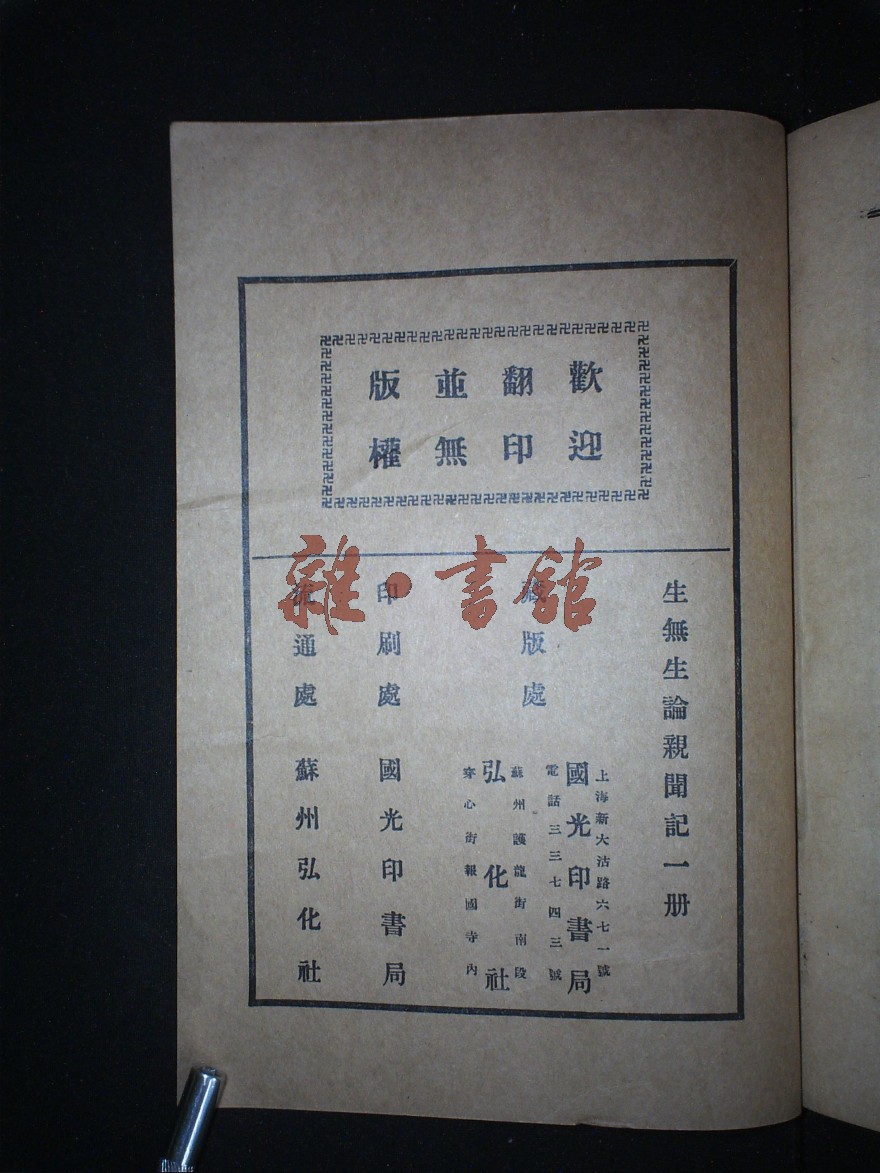 歡迎
翻印
並無
版權
生無生論親聞記一册
藏版處
上海新大沽路六七一號
國光印書局
電話三三七四三號
蘇州護龍街南段
弘化社
穿心街報國寺內
印刷處
國光印書局
流通處
蘇州弘化社
雜·書館